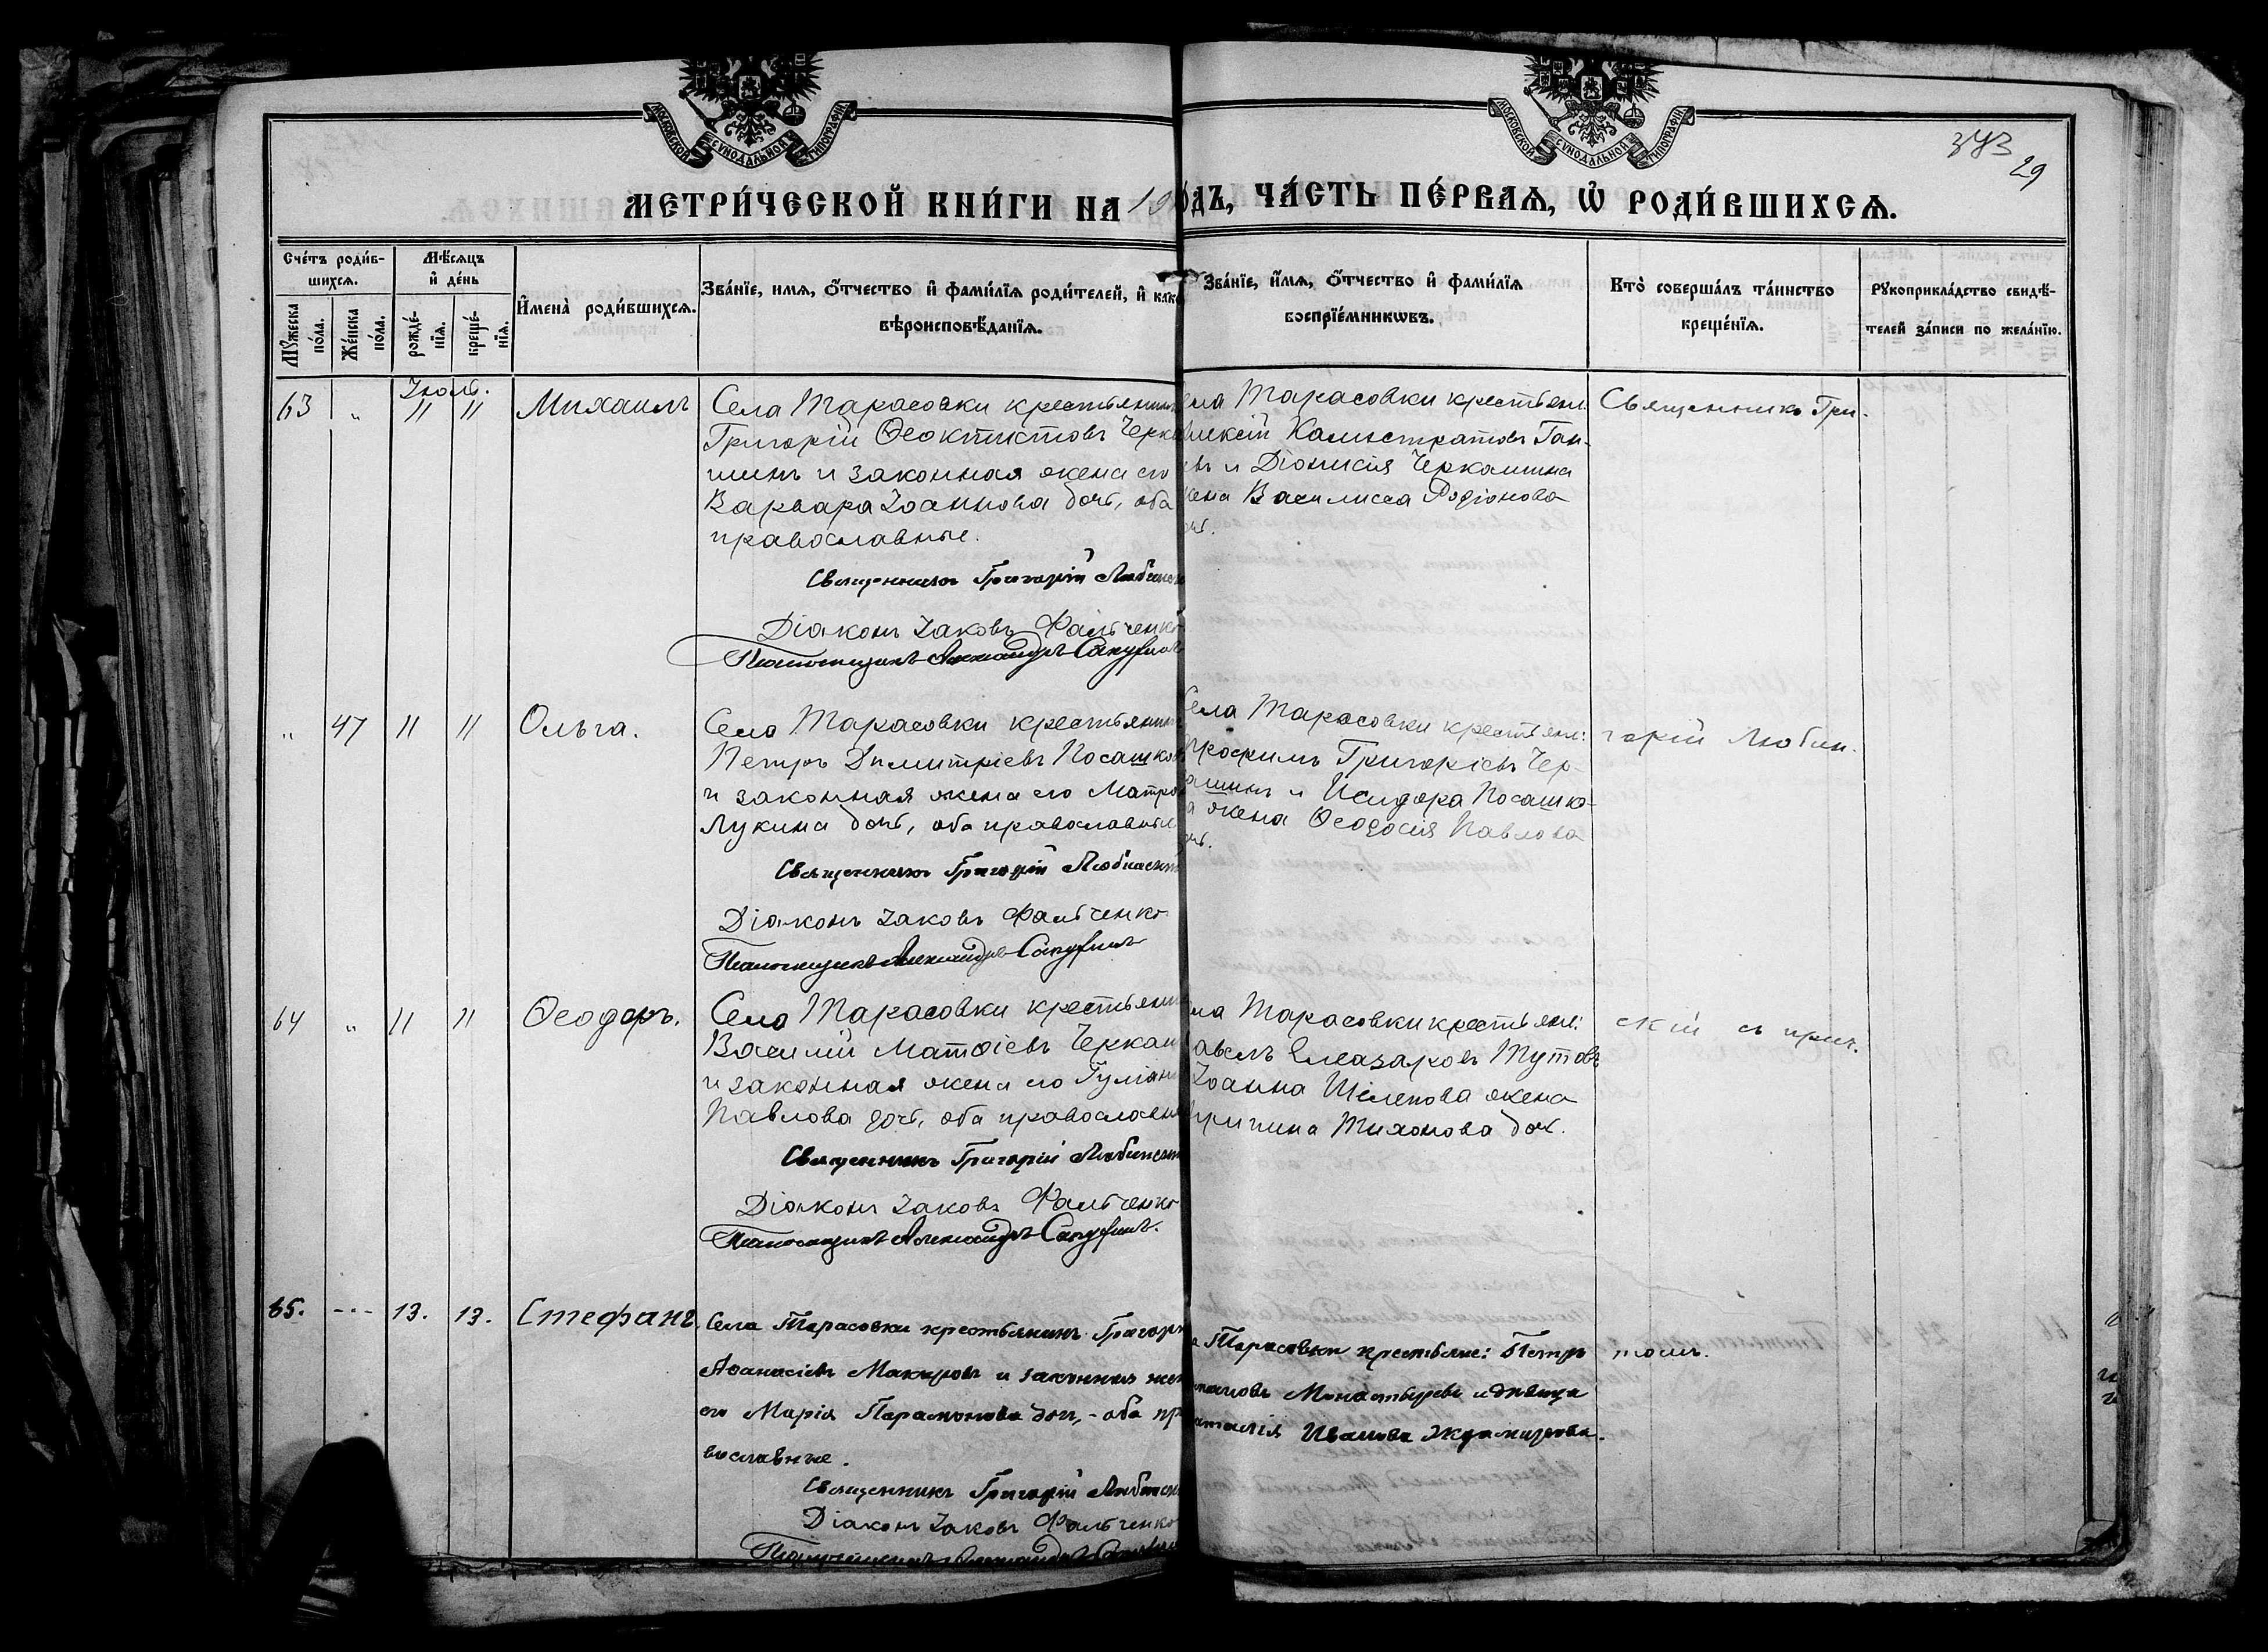 МОСКОВСКОЙ СѴНОДАЛЬНОЙ ТИПОГРАФІИ
МОСКОВСКОЙ СѴНОДАЛЬНОЙ ТИПОГРАФІИ
29
МЕТРИ́ЧЕСКОЙ КНИ́ГИ НА 19
ОДЪ, ЧА́СТЬ ПЕ́РВАѦ, Ѡ҆ РОДИ́ВШИХСѦ.
Сче́тъ роди́в-
шихсѧ.
Мѣ́сѧцъ
и҆ де́нь
Мꙋ́жеска
по́ла.
Же́нска
по́ла.
рожде́-
нїѧ.
креще́-
нїѧ.
И҆мена̀ роди́вшихсѧ.
Зва́нїе, имѧ, ѻ҆́тчество и҆ фами́лїѧ роди́телей, и҆ как
вѣроисповѣ́данїѧ.
Зва́нїе, и҆́мѧ, ѻ҆́тчество и҆ фами́лїѧ
воспрїе́мникѡвъ.
Кто̀ соверша́лъ та́инство
креще́нїѧ.
Рꙋкоприкла́дство свидѣ́-
телей за́писи по жела́нїю.
Іюль.
63 " 11 11 Михаилъ
Села Тарасовки крестьянинъ
Григорій Ѳеоктистовъ Черка
шинъ и законная жена его
Варвара Іоаннова дочь, оба
православные.
Священникъ Григорій Любинск
Діаконъ Іаковъ Фальченко
Псаломщикъ Александръ
ела Тарасовки крестьяне:
лексій Калистратовъ Ган-
въ и Діонисія Черкашина
жена Василисса Родіонова
очь.
Священникъ Гри-
" 47 11 11 Ольга.
Села Тарасовки крестьянинъ
Петръ Димитріевъ Посашковъ
и законная жена его Матро
Лукина дочь, оба православные
Священникъ Григорій Любинскій
Діаконъ Іаковъ Фальченко
Псаломщикъ Александръ
Села Тарасовки крестьяне:
Григоріевъ Чер-
ашинъ и Исидора Посашко-
а жена Ѳеодосія Павлова
очь.
горій Любин-
64 " 11 11 Ѳеодоръ.
Села Тарасовки крестьянин
Василій Матѳіевъ Черкаш
и законная жена его Гуліан
Павлова дочь, оба православн
Священникъ Григорій Любинскі
Діаконъ Іаковъ Фальченко
Псаломщикъ Александръ
ла Тарасовки крестьяне:
авелъ Елеазаровъ Тутовъ
Іоанна Шелепова жена
Тихонова дочь.
скій съ прич-
65. --- 13. 13. Стефанъ.
Села Тарасовки крестьянинъ Григорі
Аѳанасіевъ и законная жен
его Марія Парамонова дочь, - оба пр
вославные.
Священникъ Григорій Любинск
Діаконъ Іаковъ Фальченко
Псаломщикъ Александръ
а Тарасовки крестьяне: Петръ
Монастыревъ и дѣвица
аталія Иванова
томъ.